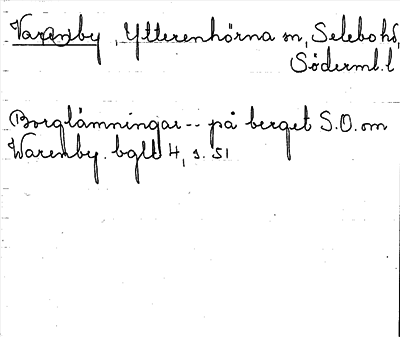 Varenby, Ytterenhörna sn, Selebo hd,
Söderml. l
Borglämningar -- på berget S.O. om
Warenby. bgltt 4, s. 51